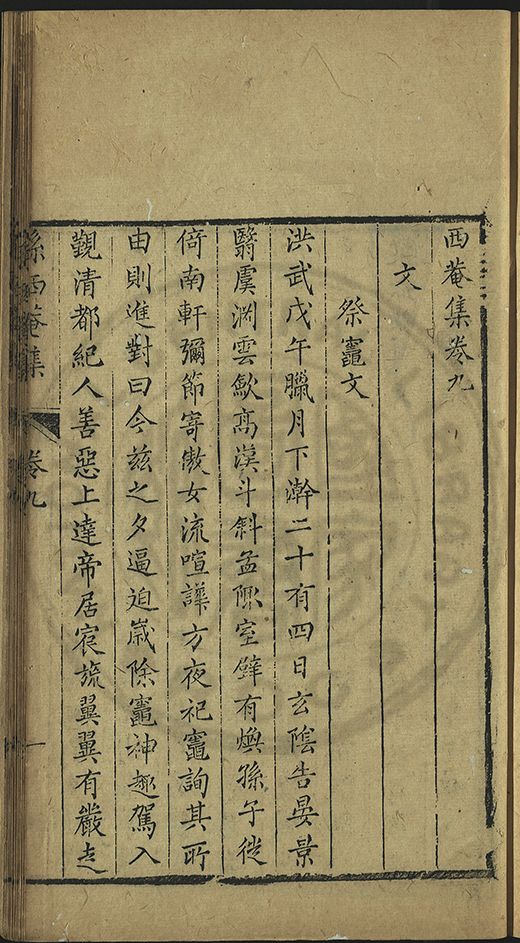 西菴集卷九
文
祭竈文
洪武戊午臘月下澣二十有四日玄陰告晏景
翳虞淵雲歛高漢斗斜孟陬室壁有煥孫子徙
倚南軒彌節寄傲女流喧譁方夜祀竈詢其所
由則進對曰今兹之夕逼迫歲除竈神趣駕入
觀清都紀人善惡上達帝居扆旒翼翼有嚴
孫西菴集 卷九 一